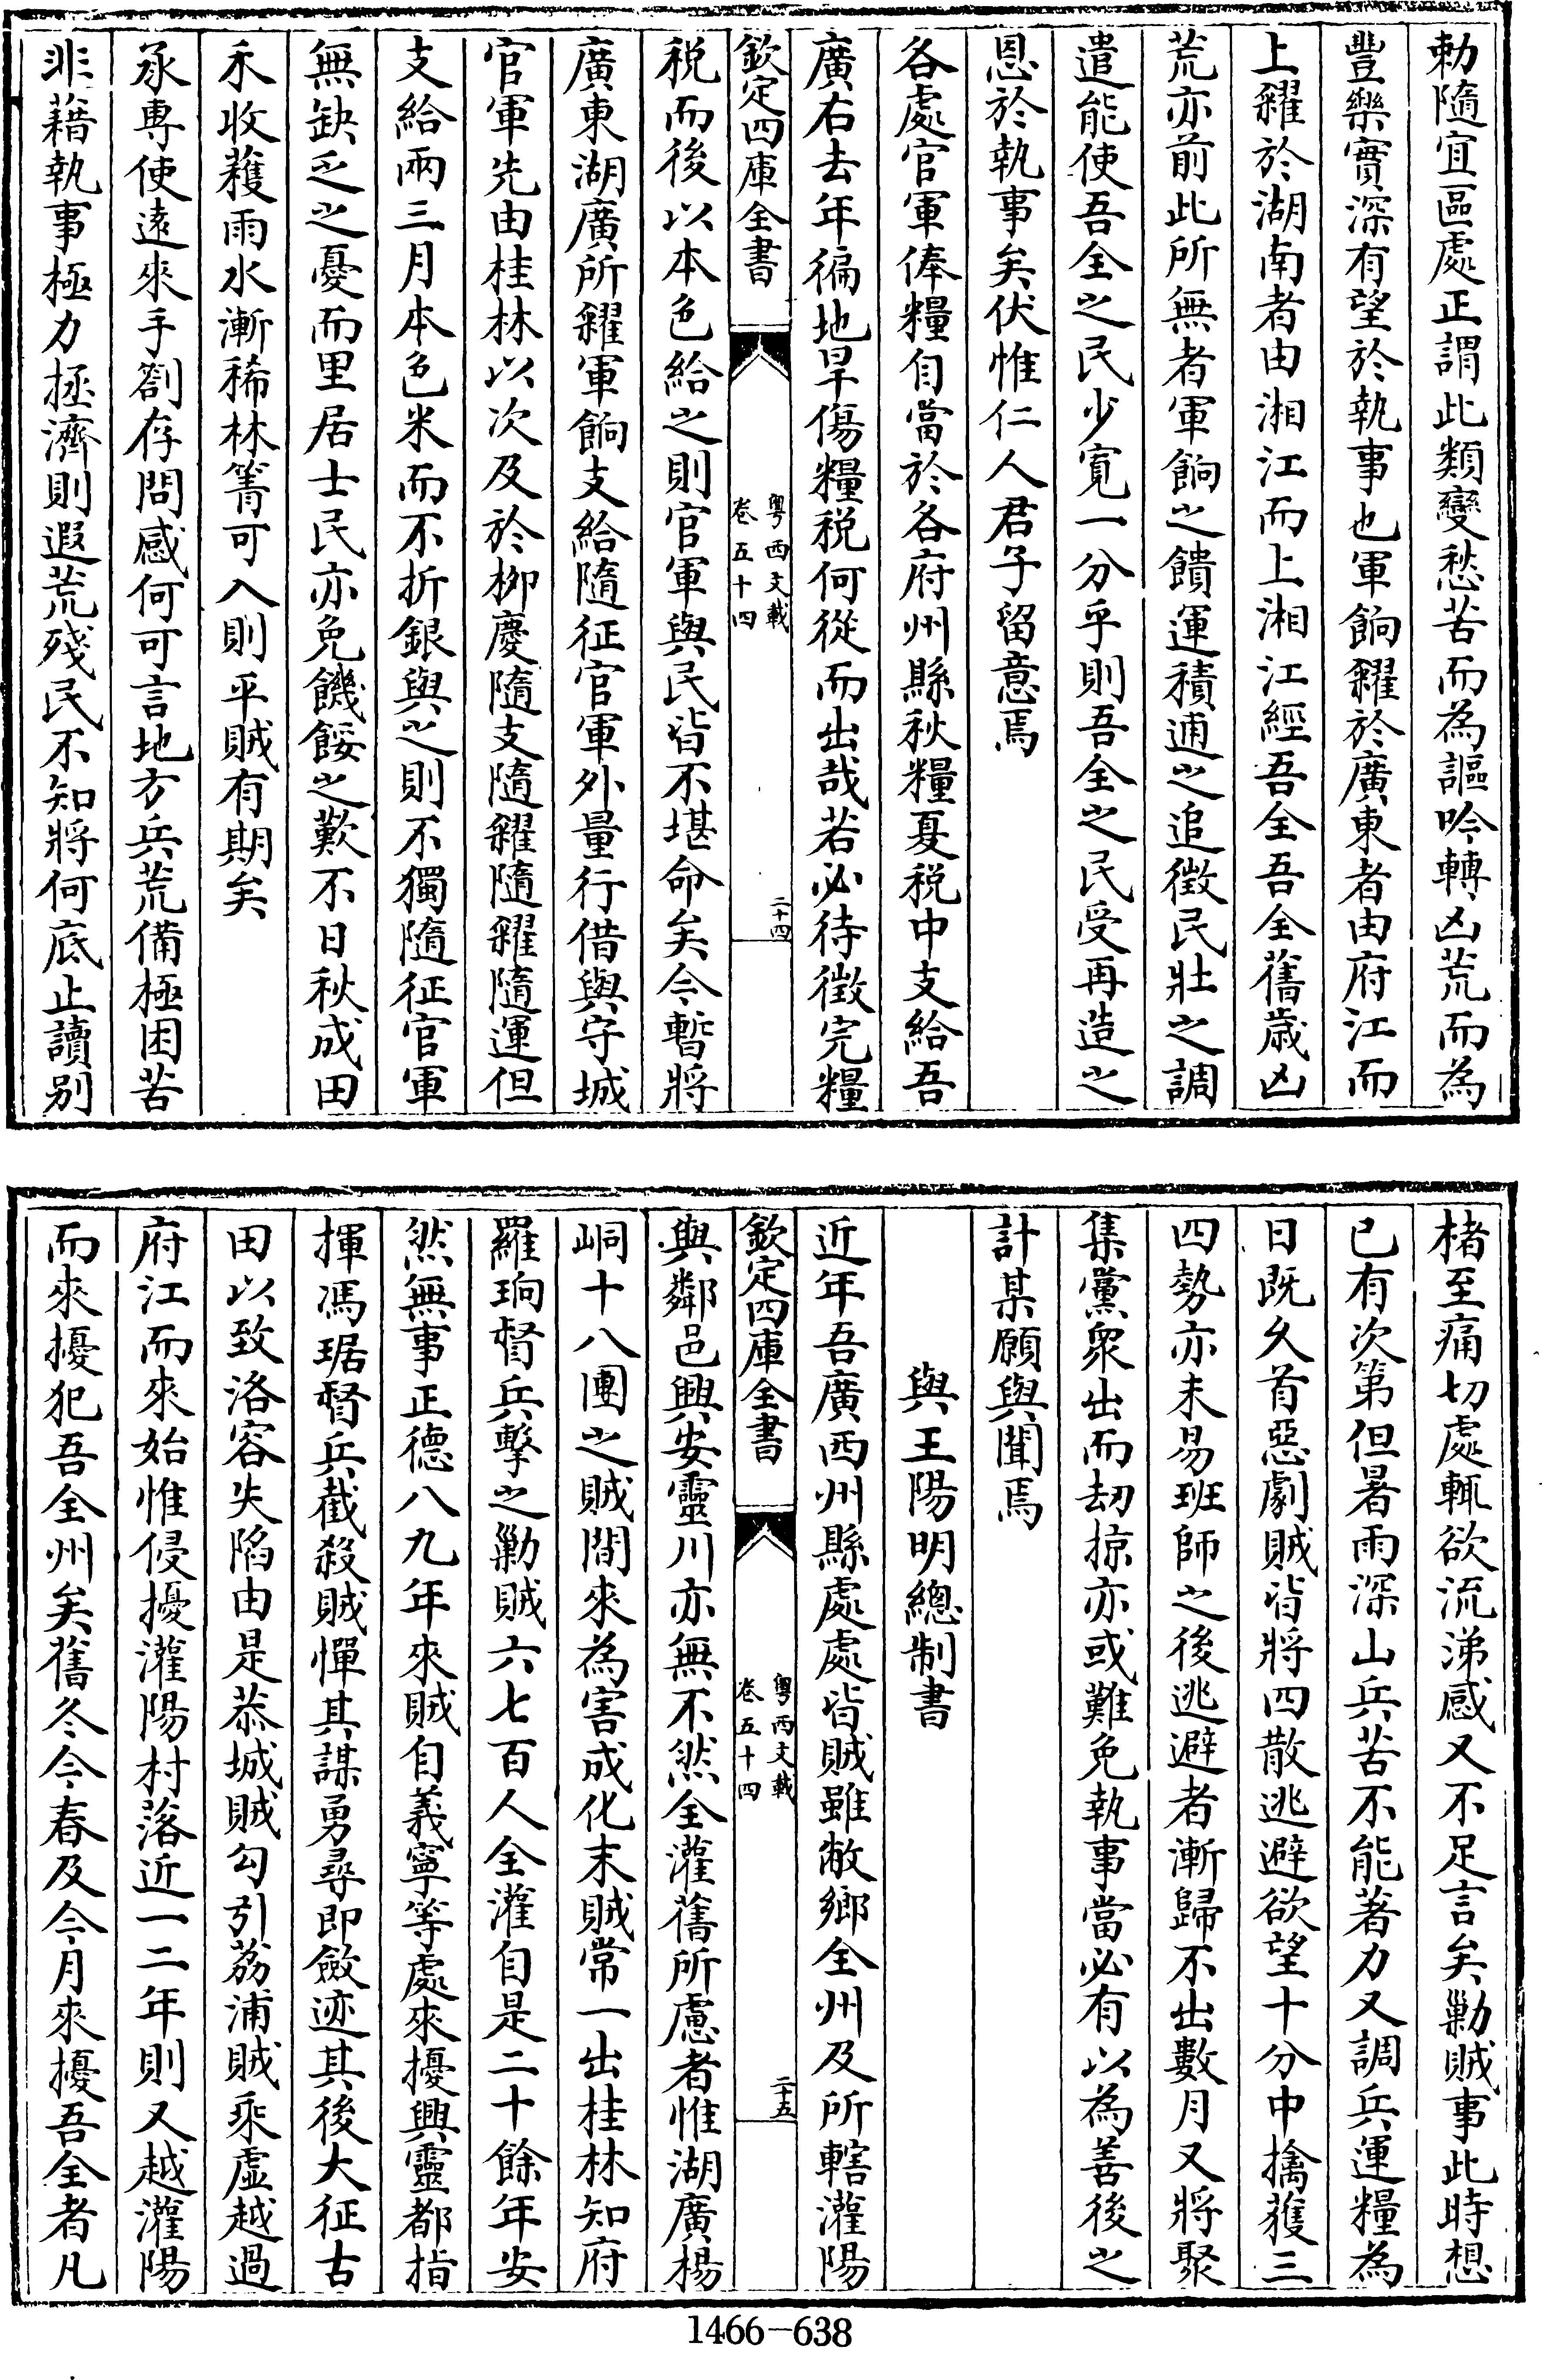 勅隨宜區處正謂此類變愁苦而為謳吟轉凶荒而為
豐樂實深有望於執事也軍餉糴於廣東者由府江而
上糴於湖南者由湘江而上湘江經吾全吾全舊歲凶
荒亦前此所無者軍餉之饋運積逋之追徴民壯之調
遣能使吾全之民少寛一分乎則吾全之民受再造之
恩於執事矣伏惟仁人君子留意焉
各處官軍俸糧自當於各府州縣秋糧夏税中支給吾
廣右去年徧地旱傷糧税何從而出哉若必待徴完糧
欽定四庫全書
粤西文載
卷五十四
二十四
税而後以本色給之則官軍與民皆不堪命矣今暫將
廣東湖廣所糴軍餉支給隨征官軍外量行借與守城
官軍先由桂林以次及於柳慶隨支隨糴隨糴隨運但
支給兩三月本色米而不折銀與之則不獨隨征官軍
無缺乏之憂而里居士民亦免饑餒之歎不日秋成田
禾收蓛雨水漸稀林箐可入則平賊有期矣
承專使遠來手劄存問感何可言地方兵荒備極困苦
非藉執事極力拯濟則遐荒殘民不知將何底止讀别
楮至痛切處輒欲流涕感又不足言矣勦賊事此時想
已有次第但暑雨深山兵苦不能著力又調兵運糧為
日既久首惡劇賊皆將四散逃避欲望十分中擒獲三
四勢亦未易班師之後逃避者漸歸不出數月又將聚
集黨衆出而刼掠亦或難免執事當必有以為善後之
計某願與聞焉
與王陽明總制書
近年吾廣西州縣處處皆賊雖敝鄉全州及所轄灌陽
欽定四庫全書
粤西文載
卷五十四
二十五
與鄰邑興安靈川亦無不然全灌舊所慮者惟湖廣楊
峒十八團之賊間來為害成化末賊常一出桂林知府
羅珦督兵擊之勦賊六七百人全灌自是二十餘年安
然無事正德八九年來賊自義寧等處來擾興靈都指
揮馮琚督兵截殺賊憚其謀勇尋即斂迹其後大征古
田以致洛容失陷由是恭城賊勾引荔浦賊乘虛越過
府江而來始惟侵擾灌陽村落近一二年則又越灌陽
而來擾犯吾全州矣舊冬今春及今月來擾吾全者凡
1466-638